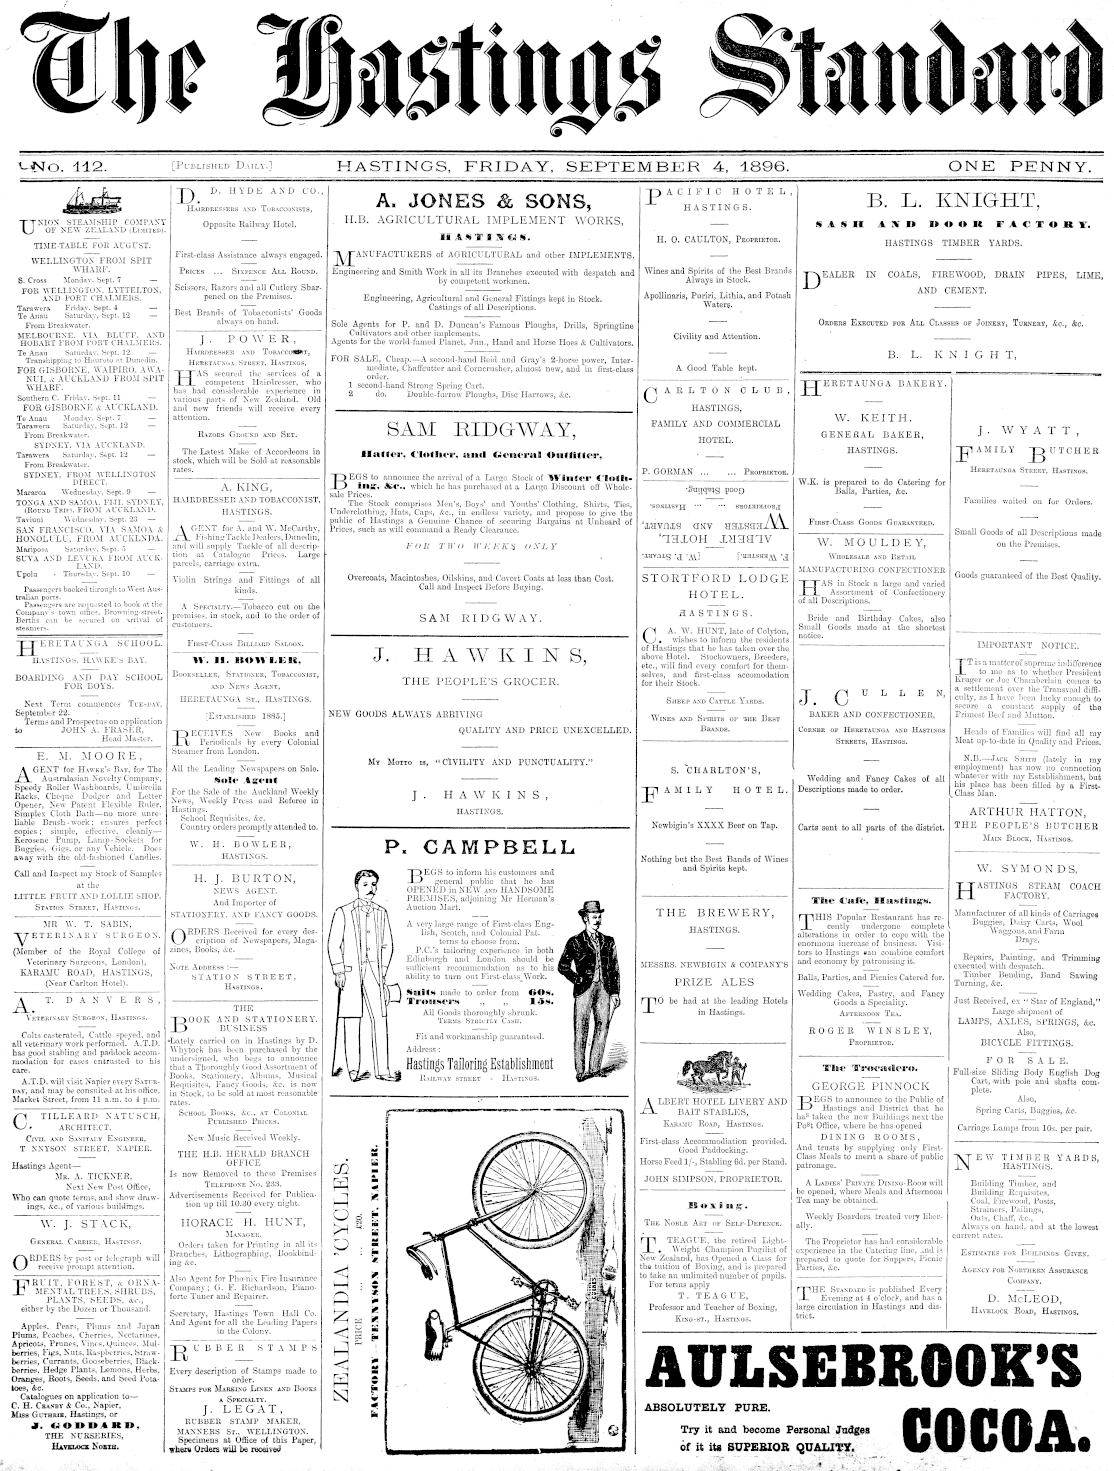 The Hastings Standard
No. 112.
[Published Daily.]
HASTINGS, FRIDAY, SEPTEMBER 4, 1896.
ONE PENNY.
UNION STEAMSHIP COMPANY
OF NEW ZEALAND (Limited).
TIME-TABLE FOR AUGUST.
WELLINGTON FROM SPIT
WHARF.
S. Cross Monday. Sept. 7 —
FOR WELLINGTON, LYTTELTON,
AND PORT CHALMERS.
Tarawera Friday. Sept. 4 —
Te Anau Saturday, Sept. 12 —
From Breakwater.
MELBOURNE, VIA BLUFF, AND
HOBART FROM PORT CHALMERS.
Te Anau Saturday, Sept. 12 —
Transhipping to Hauroto at Dunedin.
FOR GISBORNE, WAIPIRO, AWA-
NUI, & AUCKLAND FROM SPIT
WHARF.
Southern C. Friday, Sept. 11 —
FOR GISBORNE & AUCKLAND.
Te Anau Monday, Sept. 7 —
Tarawera Saturday, Sept. 12 —
From Breakwater.
SYDNEY, VIA AUCKLAND.
Tarawera Saturday, Sept. 12 —
From Breakwater.
SYDNEY, FROM WELLINGTON
DIRECT.
Mararoa Wednesday, Sept. 9 —
TONGA AND SAMOA, FIJI, SYDNEY,
(Round Trip), FROM AUCKLAND.
Taviuni Wednesday, Sept. 23 —
SAN FRANCISCO, VIA SAMOA &
HONOLULU, FROM AUCKLNDA.
Mariposa Saturday, Sept. 5 —
SUVA AND LEVUKA FROM AUCK-
LAND.
Upolu - Thursday, Sept. 10 —
Passengers booked through to West Aus-
tralian ports.
Passengers are requested to book at the
Company's town office, Browning-street.
Berths can be secured on arrival of
steamers.
HERETAUNGA SCHOOL.
HASTINGS, HAWKE'S BAY.
BOARDING AND DAY SCHOOL
FOR BOYS.
Next Term commences Tuesday,
September 22.
Terms and Prospectus on application
to JOHN A. FRASER,
Head Master.
E. M. MOORE,
AGENT for Hawke's Bay, for The
Australasian Novelty Company,
Speedy Roller Washboards, Umbrella
Racks, Cheque Dodger and Letter
Opener, New Patent Flexible Ruler,
Simplex Cloth Bath—no more unre-
liable Brush-work; ensures perfect
copies; simple, effective, cleanly—
Kerosene Pump, Lamp-Sockets for
Buggies, Gigs, or any Vehicle. Does
away with the old-fashioned Candles.
Call and Inspect my Stock of Samples
at the
LITTLE FRUIT AND LOLLIE SHOP,
Station Street, Hastings.
MR W. T. SABIN,
VETERINARY SURGEON.
(Member of the Royal College of
Veterinary Surgeons, London),
KARAMU ROAD, HASTINGS,
(Near Carlton Hotel).
A. T. DANVERS,
Veterinary Surgeon, Hastings.
Colts casterated, Cattle speyed, and
all veterinary work performed. A.T.D.
has good stabling and paddock accom-
modation for cases entrusted to his
care.
A.T.D. will visit Napier every Satur-
day, and may be consulted at his office,
Market Street, from 11 a.m. to 4 p.m.
C. TILLEARD NATUSCH,
ARCHITECT.
Civil and Sanitary Engineer,
T NNYSON STREET, NAPIER.
Hastings Agent—
Mr. A. TICKNER,
Next New Post Office,
Who can quote terms, and show draw-
ings, &c., of various buildings.
W. J. STACK,
General Carrier, Hastings.
ORDERS by post or telegraph will
receive prompt attention.
FRUIT, FOREST, & ORNA-
MENTAL TREES, SHRUBS,
PLANTS, SEEDS, &c.,
either by the Dozen or Thousand.
Apples, Pears, Plums and Japan
Plums, Peaches, Cherries, Nectarines,
Apricots, Prunes, Vines, Quinces, Mul-
berries, Figs, Nuts, Raspberries, Straw-
berries, Currants, Gooseberries, Black-
berries, Hedge Plants, Lemons, Herbs,
Oranges, Roots, Seeds, and Seed Pota-
toes, &c.
Catalogues on application to—
C. H. Cranby & Co., Napier,
Miss Guthrie, Hastings, or
J. GODDARD,
THE NURSERIES,
Havelock North.
D. D. HYDE AND CO.,
Hairdressers and Tobacconists,
Opposite Railway Hotel.
First-class Assistance always engaged.
Prices ... Sixpence All Round.
Scissors, Razors and all Cutlery Shar-
pened on the Premises.
Best Brands of Tobacconists' Goods
always on hand.
J. POWER,
Hairdresser and Tobacconist,
Heretaunga Street, Hastings,
HAS secured the services of a
competent Hairdresser, who
has had considerable experience in
various parts of New Zealand. Old
and new friends will receive every
attention.
Razors Ground and Set.
The Latest Make of Accordeons in
stock, which will be Sold at reasonable
rates.
A. KING,
HAIRDRESSER AND TOBACCONIST,
HASTINGS.
AGENT for A. and W. McCarthy,
Fishing Tackle Dealers, Dunedin,
and will supply Tackle of all descrip-
tion at Catalogue Prices. Large
parcels, carriage extra.
Violin Strings and Fittings of all
kinds.
A Specialty.—Tobacco cut on the
premises, in stock, and to the order of
customers.
First-Class Billiard Saloon.
W. H. BOWLER,
Bookseller, Stationer, Tobacconist,
and News Agent,
HERETAUNGA St., HASTINGS.
[Established 1885.]
RECEIVES New Books and
Periodicals by every Colonial
Steamer from London.
All the Leading Newspapers on Sale.
Sole Agent
For the Sale of the Auckland Weekly
News, Weekly Press and Referee in
Hastings.
School Requisites, &c.
Country orders promptly attended to.
W. H. BOWLER,
HASTINGS.
H. J. BURTON,
NEWS AGENT.
And Importer of
STATIONERY, AND FANCY GOODS.
ORDERS Received for every des-
cription of Newspapers, Maga-
zines, Books, &c.
Note Address :—
STATION STREET,
Hastings.
THE
BOOK AND STATIONERY.
BUSINESS
Lately carried on in Hastings by D.
Whytock has been purchased by the
undersigned, who begs to announce
that a Thoroughly Good Assortment of
Books, Stationery, Albums, Musical
Requisites, Fancy Goods, &c. is now
in Stock, to be sold at most reasonable
rates.
School Books, &c., at Colonial
Published Prices.
New Music Received Weekly.
THE H.B. HERALD BRANCH
OFFICE
Is now Removed to these Premises
Telephone No. 233.
Advertisements Received for Publica-
tion up till 10.30 every night.
HORACE H. HUNT,
Manager.
Orders taken for Printing in all its
Branches, Lithographing, Bookbind-
ing &c.
Also Agent for Phœnix Fire Insurance
Company; G. F. Richardson, Piano-
forte Tuner and Repairer.
Secretary, Hastings Town Hall Co.
And Agent for all the Leading Papers
in the Colony.
RUBBER STAMPS
Every description of Stamps made to
order.
Stamps for Marking Linen and Books
a Specialty.
J. LEGAT,
RUBBER STAMP MAKER,
MANNERS St., WELLINGTON.
Specimens at Office of this Paper,
where Orders will be received
A. JONES & SONS,
H.B. AGRICULTURAL IMPLEMENT WORKS,
HASTINGS.
MANUFACTURERS of AGRICULTURAL and other IMPLEMENTS.
Engineering and Smith Work in all its Branches executed with despatch and
by competent workmen.
Engineering, Agricultural and General Fittings kept in Stock.
Castings of all Descriptions.
Sole Agents for P. and D. Duncan's Famous Ploughs, Drills, Springtine
Cultivators and other implements.
Agents for the world-famed Planet, Jun., Hand and Horse Hoes & Cultivators.
FOR SALE, Cheap.—A second-hand Reid and Gray's 2-horse power, Inter-
mediate, Chaffcutter and Corncrusher, almost new, and in first-class
order.
1 second-hand Strong Spring Cart.
2 do. Double-furrow Ploughs, Disc Harrows, &c.
SAM RIDGWAY,
Hatter, Clother, and General Outfitter,
BEGS to announce the arrival of a Large Stock of Winter Cloth-
ing, &c., which he has purchased at a Large Discount off Whole-
sale Prices.
The Stock comprises Men's, Boys' and Youths' Clothing, Shirts, Ties,
Underclothing, Hats, Caps, &c., in endless variety, and propose to give the
public of Hastings a Genuine Chance of securing Bargains at Unheard of
Prices, such as will command a Ready Clearance.
FOR TWO WEEKS ONLY
Overcoats, Macintoshes, Oilskins, and Covert Coats at less than Cost.
Call and Inspect Before Buying.
SAM RIDGWAY.
J. HAWKINS,
THE PEOPLE'S GROCER.
NEW GOODS ALWAYS ARRIVING
QUALITY AND PRICE UNEXCELLED.
My Motto is, "CIVILITY AND PUNCTUALITY."
J. HAWKINS,
HASTINGS.
P. CAMPBELL
BEGS to inform his customers and
general public that he has
OPENED in NEW and HANDSOME
PREMISES, adjoining Mr Herman's
Auction Mart.
A very large range of First-class Eng-
lish, Scotch, and Colonial Pat.
terns to choose from.
P.C.'s tailoring experience in both
Edinburgh and London should be
sufficient recommendation as to his
ability to turn out First-class Work.
Suits made to order from 60s.
Trousers „ „ 15s.
All Goods thoroughly shrunk.
Terms Strictly Cash.
Fit and workmanship guaranteed.
Address :
Hastings Tailoring Establishment
Railway street - Hastings.
ZEALANDIA CYCLES.
PRICE ... ... £20.
FACTORY TENNYSON STREET, NAPIER.
PACIFIC HOTEL,
HASTINGS.
H. O. CAULTON, Proprietor.
Wines and Spirits of the Best Brands
Always in Stock.
Apollinaris, Puriri, Lithia, and Potash
Waters.
Civility and Attention.
A Good Table kept.
CARLTON CLUB,
HASTINGS,
FAMILY AND COMMERCIAL
HOTEL.
P. GORMAN ... ... Proprietor.
F. Webster.] [W. P. Stuart.
ALBERT HOTEL,
WEBSTER AND STUART,
Proprietors ... ... Hastings.
Good Stabling.
STORTFORD LODGE
HOTEL.
HASTINGS.
C. A. W. HUNT, late of Colyton,
wishes to inform the residents
of Hastings that he has taken over the
above Hotel. Stockowners, Breeders,
etc., will find every comfort for them-
selves, and first-class accomodation
for their Stock.
Sheep and Cattle Yards.
Wines and Spirits of the Best
Brands.
S. CHARLTON'S,
FAMILY HOTEL.
Newbigin's XXXX Beer on Tap.
Nothing but the Best Bands of Wines
and Spirits kept.
THE BREWERY,
HASTINGS.
MESSRS. NEWBIGIN & COMPANY'S
PRIZE ALES
TO be had at the leading Hotels
in Hastings.
ALBERT HOTEL LIVERY AND
BAIT STABLES,
Karamu Road, Hastings.
First-class Accommodation provided.
Good Paddocking.
Horse Feed 1/-, Stabling 6d. per Stand.
JOHN SIMPSON, PROPRIETOR.
Boxing.
The Noble Art of Self-Defence.
T. TEAGUE, the retired Light-
Weight Champion Pugilist of
New Zealand, has Opened a Class for
the tuition of Boxing, and is prepared
to take an unlimited number of pupils.
For terms apply
T. TEAGUE,
Professor and Teacher of Boxing,
King-st., Hastings.
B. L. KNIGHT,
SASH AND DOOR FACTORY.
HASTINGS TIMBER YARDS.
DEALER IN COALS, FIREWOOD, DRAIN PIPES, LIME,
AND CEMENT.
Orders Executed for All Classes of Joinery, Turnery, &c., &c.
B. L. KNIGHT,
HERETAUNGA BAKERY.
W. KEITH.
GENERAL BAKER,
HASTINGS.
W.K. is prepared to do Catering for
Balls, Parties, &c.
First-Class Goods Guaranteed.
W. MOULDEY,
Wholesale and Retail
MANUFACTURING CONFECTIONER
HAS in Stock a large and varied
Assortment of Confectionery
of all Descriptions.
Bride and Birthday Cakes, also
Small Goods made at the shortest
notice.
J. CULLEN,
BAKER AND CONFECTIONER,
Corner of Heretaunga and Hastings
Streets, Hastings.
Wedding and Fancy Cakes of all
Descriptions made to order.
Carts sent to all parts of the district.
The Cafe, Hastings.
THIS Popular Restaurant has re-
cently undergone complete
alterations in order to cope with the
enormous increase of business. Visi-
tors to Hastings can combine comfort
and economy by patronising it.
Balls, Parties, and Picnics Catered for.
Wedding Cakes, Pastry, and Fancy
Goods a Speciality.
Afternoon Tea.
ROGER WINSLEY,
Proprietor.
The Trocadero.
GEORGE PINNOCK
BEGS to announce to the Public of
Hastings and District that he
has taken the new Buildings next the
Post Office, where he has opened
DINING ROOMS,
And trusts by supplying only First-
Class Meals to merit a share of public
patronage.
A Ladies' Private Dining-Room will
be opened, where Meals and Afternoon
Tea may be obtained.
Weekly Boarders treated very liber-
ally.
The Proprietor has had considerable
experience in the Catering line, and is
prepared to quote for Suppers, Picnic
Parties, &c.
THE Standard is published Every
Evening at 4 o'clock, and has a
large circulation in Hastings and dis-
trict.
J. WYATT,
FAMILY BUTCHER
Heretaunga Street, Hastings.
Families waited on for Orders.
Small Goods of all Descriptions made
on the Premises.
Goods guaranteed of the Best Quality.
IMPORTANT NOTICE.
IT is a matter of supreme indifference
to me as to whether President
Kruger or Joe Chamberlain comes to
a settlement over the Transvaal diffi-
culty, as I have been lucky enough to
secure a constant supply of the
Primest Beef and Mutton.
Heads of Families will find all my
Meat up-to-date in Quality and Prices.
N.B.—Jack Smith (lately in my
employment) has now no connection
whatever with my Establishment, but
his place has been filled by a First-
Class Man.
ARTHUR HATTON,
THE PEOPLE'S BUTCHER
Main Block, Hastings.
W. SYMONDS.
HASTINGS STEAM COACH
FACTORY.
Manufacturer of all kinds of Carriages
Buggies, Daisy Carts, Wool
Waggons, and Farm
Drays.
Repairs, Painting, and Trimming
executed with despatch.
Timber Bending, Band Sawing
Turning, &c.
Just Received, ex "Star of England,"
Large shipment of
LAMPS, AXLES, SPRINGS, &c.
Also,
BICYCLE FITTINGS.
FOR SALE.
Full-size Sliding Body English Dog
Cart, with pole and shafts com-
plete.
Also,
Spring Carts, Buggies, &c.
Carriage Lamps from 10s. per pair.
NEW TIMBER YARDS,
HASTINGS.
Timber, Building, and
Building Requisites,
Coal, Firewood, Posts,
Strainers, Palings,
Oats, Chaff, &c.,
Always on hand, and at the lowest
current rates.
Estimates for Buildings Given.
Agency for Northern Assurance
Company.
D. McLEOD,
Havelock Road, Hastings.
AULSEBROOK'S
ABSOLUTELY PURE.
Try it and become Personal Judges
of it its SUPERIOR QUALITY.
COCOA.